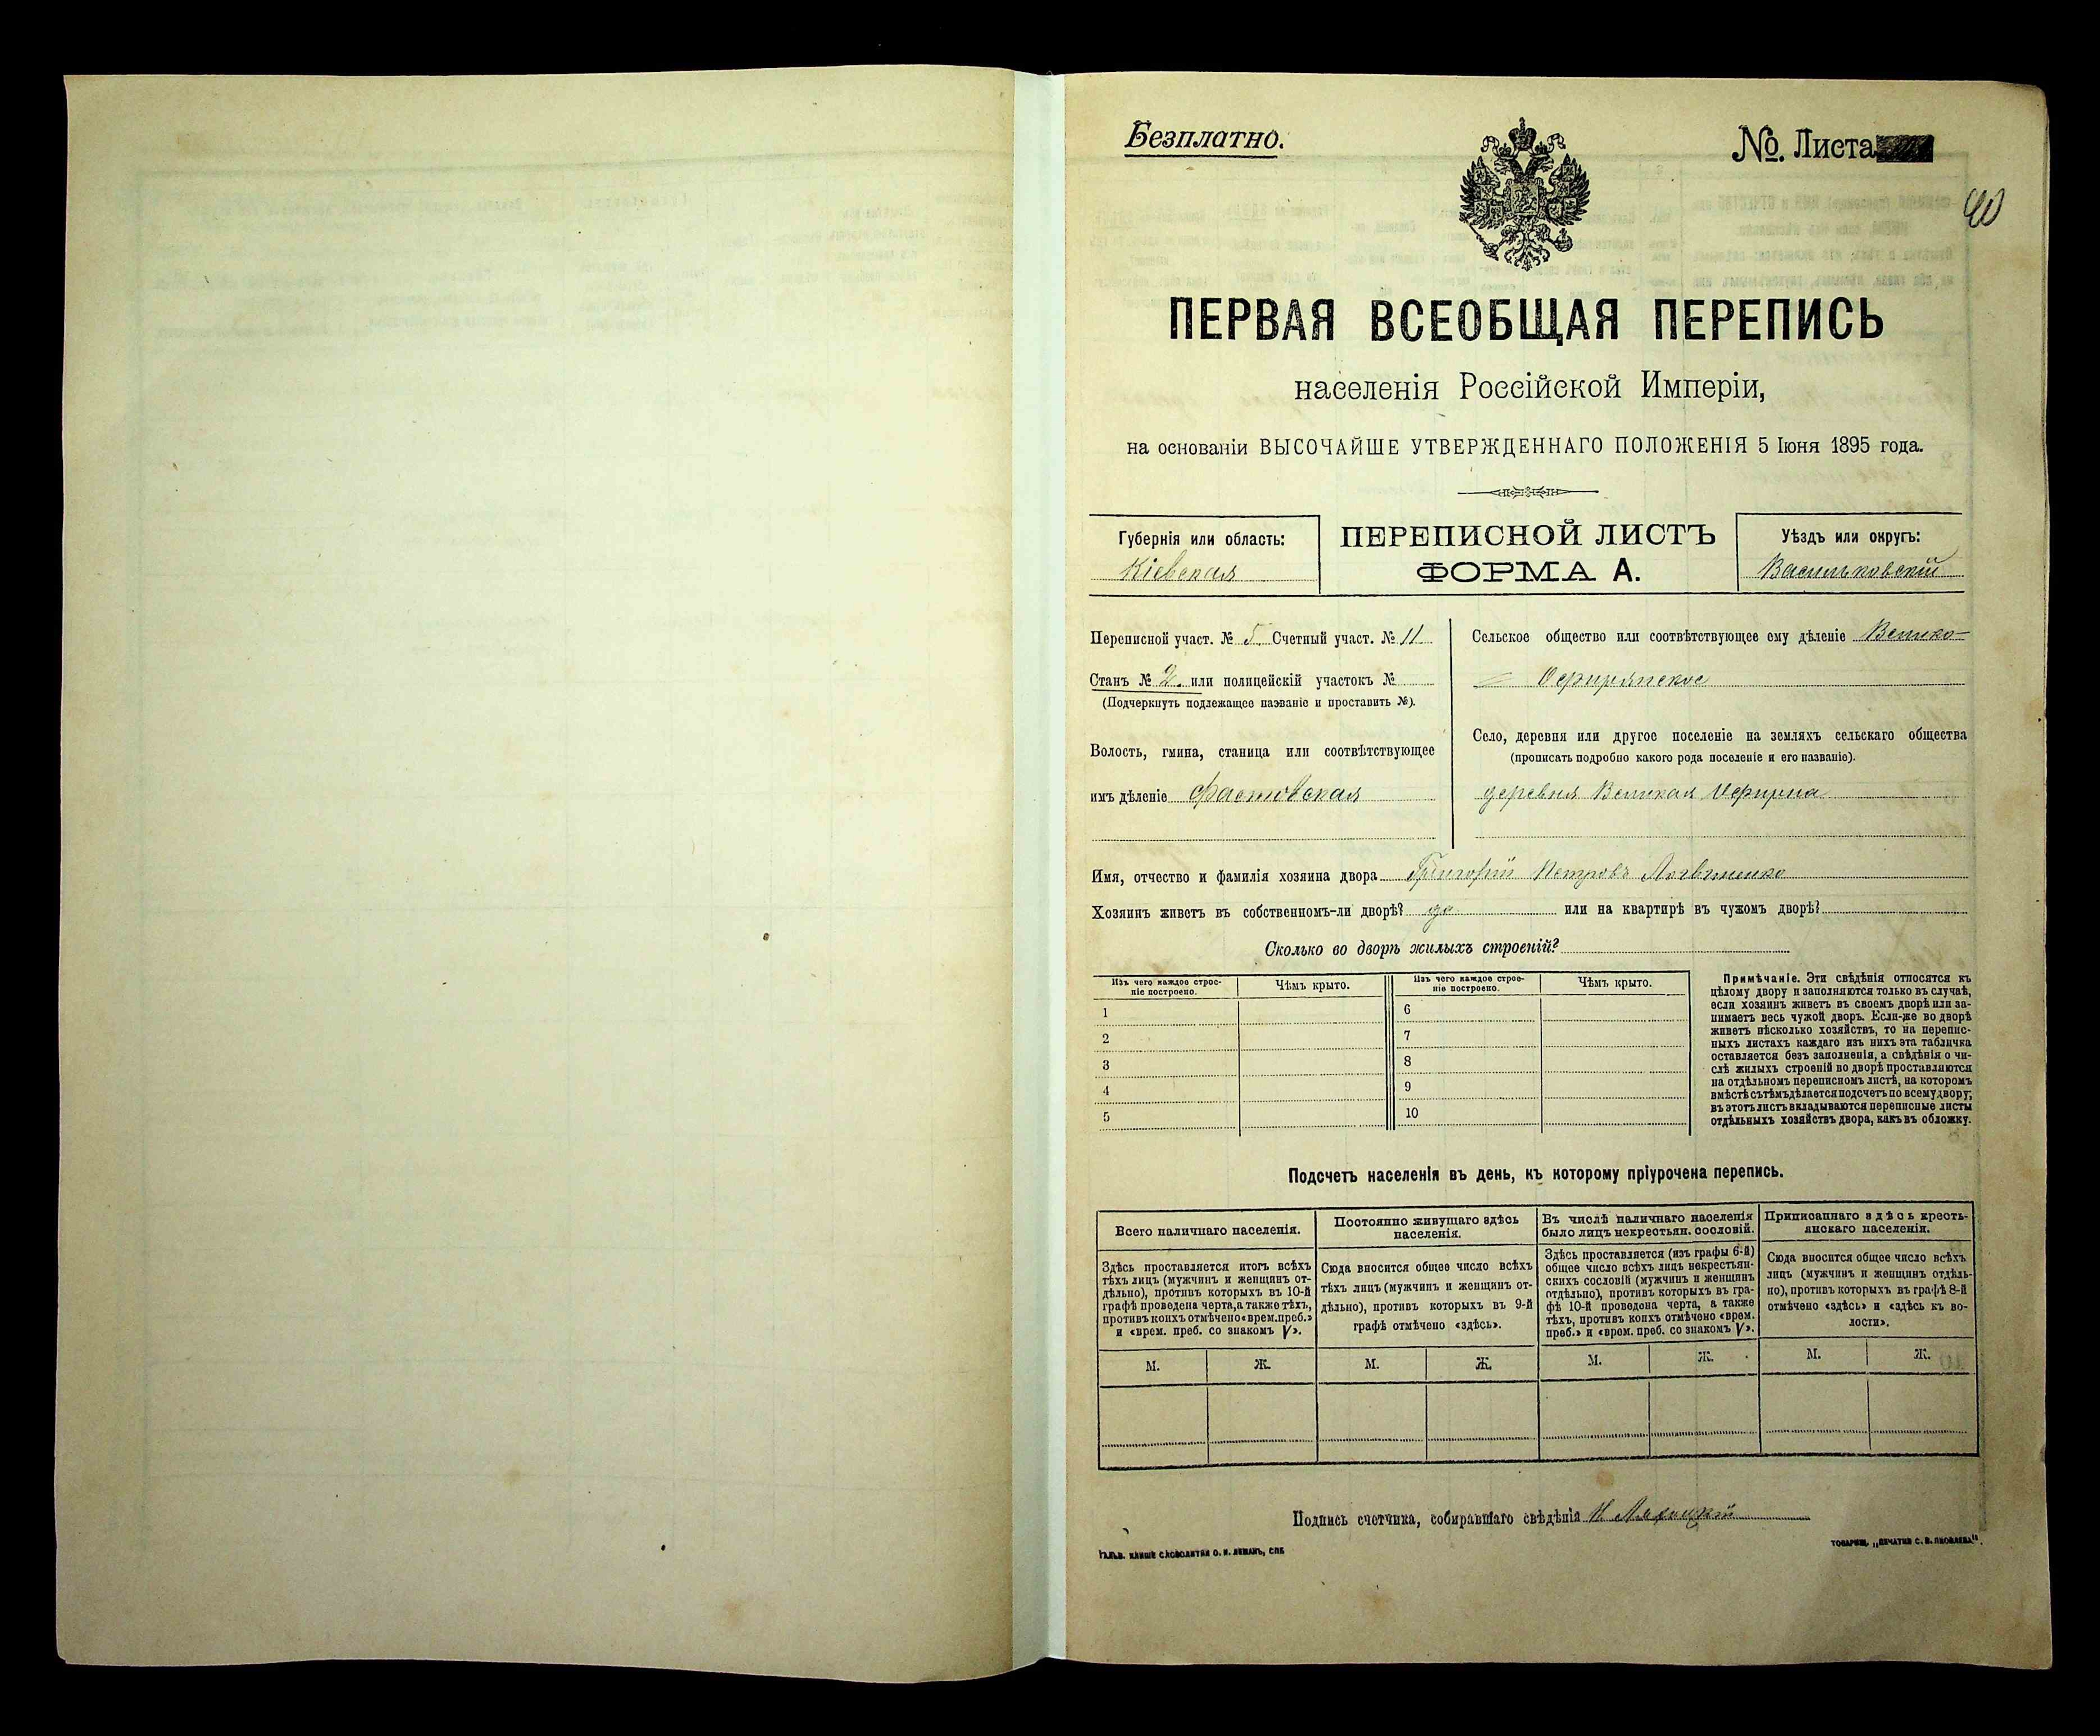 Безплатно.
№. Листа
40
ПЕРВАЯ ВСЕОБЩАЯ ПЕРЕПИСЬ
населенія Россійской Имперіи,
на основаніи ВЫСОЧАЙШЕ УТВЕРЖДЕННАГО ПОЛОЖЕНІЯ 5 Іюня 1895 года.
Губернія или область:
Кіевская
ПЕРЕПИСНОЙ ЛИСТЪ
ФОРМА А.
Уѣздъ или округъ:
Васильковскій
Переписной участ. № 5 Счетный участ. № 11
Станъ № 2. или полицейскій участокъ №
(Подчеркнуть подлежащее названіе и проставить №).
Волость, гмина, станица или соотвѣтствующее
имъ дѣленіе Фастовская
Сельское общество или соотвѣтствующее ему дѣленіе Велико-
Офирнянское
Село, деревня или другое поселеніе на земляхъ сельскаго общества
(прописать подробно какого рода поселеніе и его названіе).
деревня Великая Офирна
Имя, отчество и фамилія хозяина двора Григорій Петровъ Логвиненко
Хозяинъ живетъ въ собственномъ-ли дворѣ? да или на квартирѣ въ чужомъ дворѣ?
Сколько во дворѣ жилыхъ строеній?
Изъ чего каждое строе-
ніе построено.
Чѣмъ крыто.
1
2
3
4
5
Изъ чего каждое строе-
ніе построено.
Чѣмъ крыто.
6
7
8
9
10
Примѣчаніе. Эти свѣдѣнія относятся къ
цѣлому двору и заполняются только въ случаѣ,
если хозяинъ живетъ въ своемъ дворѣ или за-
нимаетъ весь чужой дворъ. Если-же во дворѣ
живетъ нѣсколько хозяйствъ, то на перепис-
ныхъ листахъ каждаго изъ нихъ эта табличка
оставляется безъ заполненія, а свѣдѣнія о чи-
слѣ жилыхъ строеній во дворѣ проставляются
на отдѣльномъ переписномъ листѣ, на которомъ
вмѣстѣ съ тѣмъ дѣлается подсчетъ по всему двору;
въ этотъ листъ вкладываются переписные листы
отдѣльныхъ хозяйствъ двора, какъ въ обложку.
Подсчетъ населенія въ день, къ которому пріурочена перепись.
Всего наличнаго населенія.
Здѣсь проставляется итогъ всѣхъ
тѣхъ лицъ (мужчинъ и женщинъ от-
дѣльно), противъ которыхъ въ 10-й
графѣ проведена черта, а также тѣхъ,
противъ коихъ отмѣчено «врем. преб.»
и «врем. преб. со знакомъ V».
М.
Ж.
Постоянно живущаго здѣсь
населенія.
Сюда вносится общее число всѣхъ
тѣхъ лицъ (мужчинъ и женщинъ от-
дѣльно), противъ которыхъ въ 9-й
графѣ отмѣчено «здѣсь».
М.
Ж.
Въ числѣ наличнаго населенія
было лицъ некрестьян. сословій.
Здѣсь проставляется (изъ графы 6-й)
общее число всѣхъ лицъ некрестьян-
скихъ сословій (мужчинъ и женщинъ
отдѣльно), противъ которыхъ въ гра-
фѣ 10-й проведена черта, а также
тѣхъ, противъ коихъ отмѣчено «врем.
преб.» и «врем. преб. со знакомъ V».
М.
Ж.
Приписаннаго здѣсь кресть-
янскаго населенія.
Сюда вносится общее число всѣхъ
лицъ (мужчинъ и женщинъ отдѣль-
но), противъ которыхъ въ графѣ 8-й
отмѣчено «здѣсь» и «здѣсь къ во-
лости».
М.
Ж.
Подпись счетчика, собиравшаго свѣдѣнія